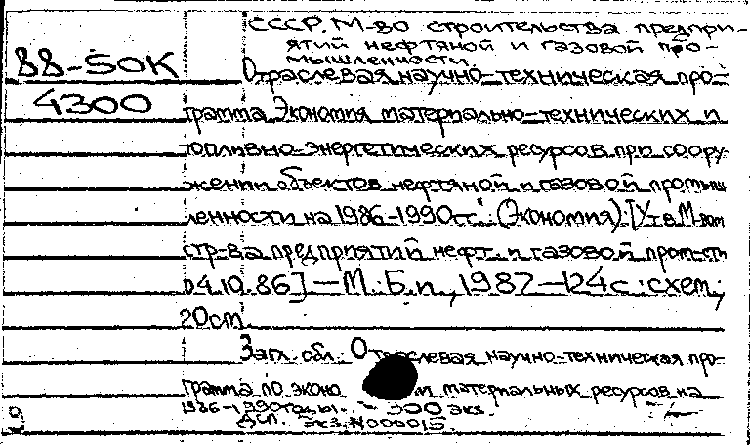 СССР. М-во строительства предпри-
ятий нефтяной и газовой про-
мышленности.
88-50К
Отраслевая научно-техническая про-
4300
грамма Экономия материально-технических и
топливно-энергетических ресурсов при соору-
жении объектов нефтяной и газовой промыш
ленности на 1986-1990 гг.: (Экономия): [Утв. М-вом
стр-ва предприятий нефт. и газовой пром-сти
04.10.86] — М.: Б.и., 1987 — 124с.: схем.;
20см.
Загл. обл.: Отраслевая научно-техническая про-
грамма по эконо и материальных ресурсов на
1986-1990 годы. - 300 экз.
ДСП. Экз. N000015.